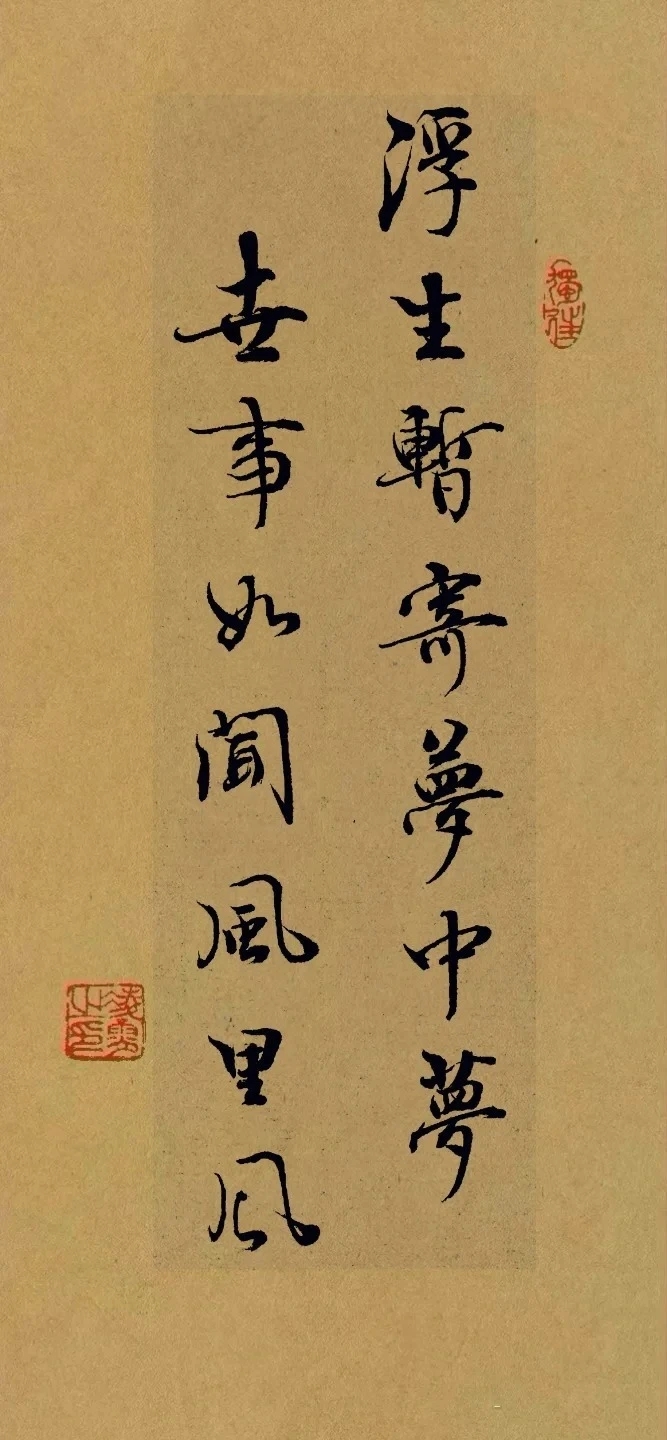 浮生暫寄夢中夢
世事如聞風里风